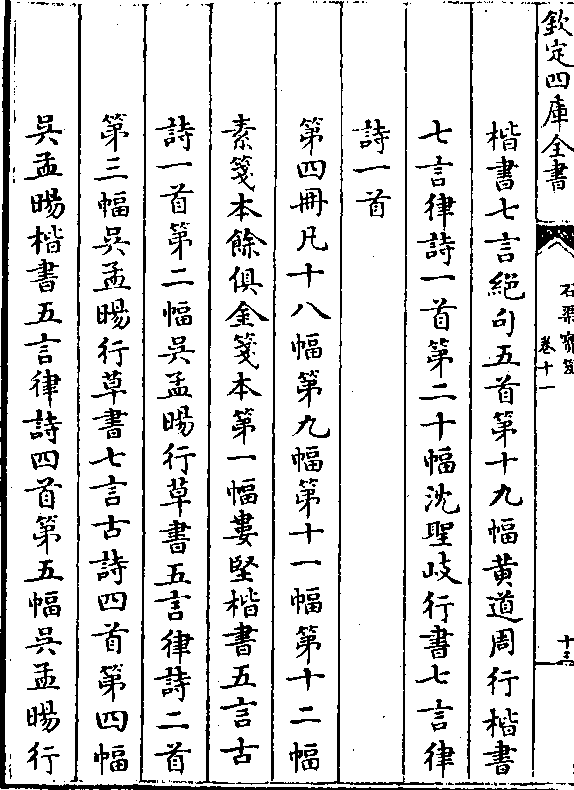 欽定四庫全書
石渠寶笈
卷十一
十三
楷書七言絕句五首第十九幅黄道周行楷書
七言律詩一首第二十幅沈聖岐行書七言律
詩一首
第四冊凡十八幅第九幅第十一幅第十二幅
素箋本餘俱金箋本第一幅婁堅楷書五言古
詩一首第二幅吳孟暘行草書五言律詩二首
第三幅吳孟暘行草書七言古詩四首第四幅
吳孟暘楷書五言律詩四首第五幅吳孟暘行